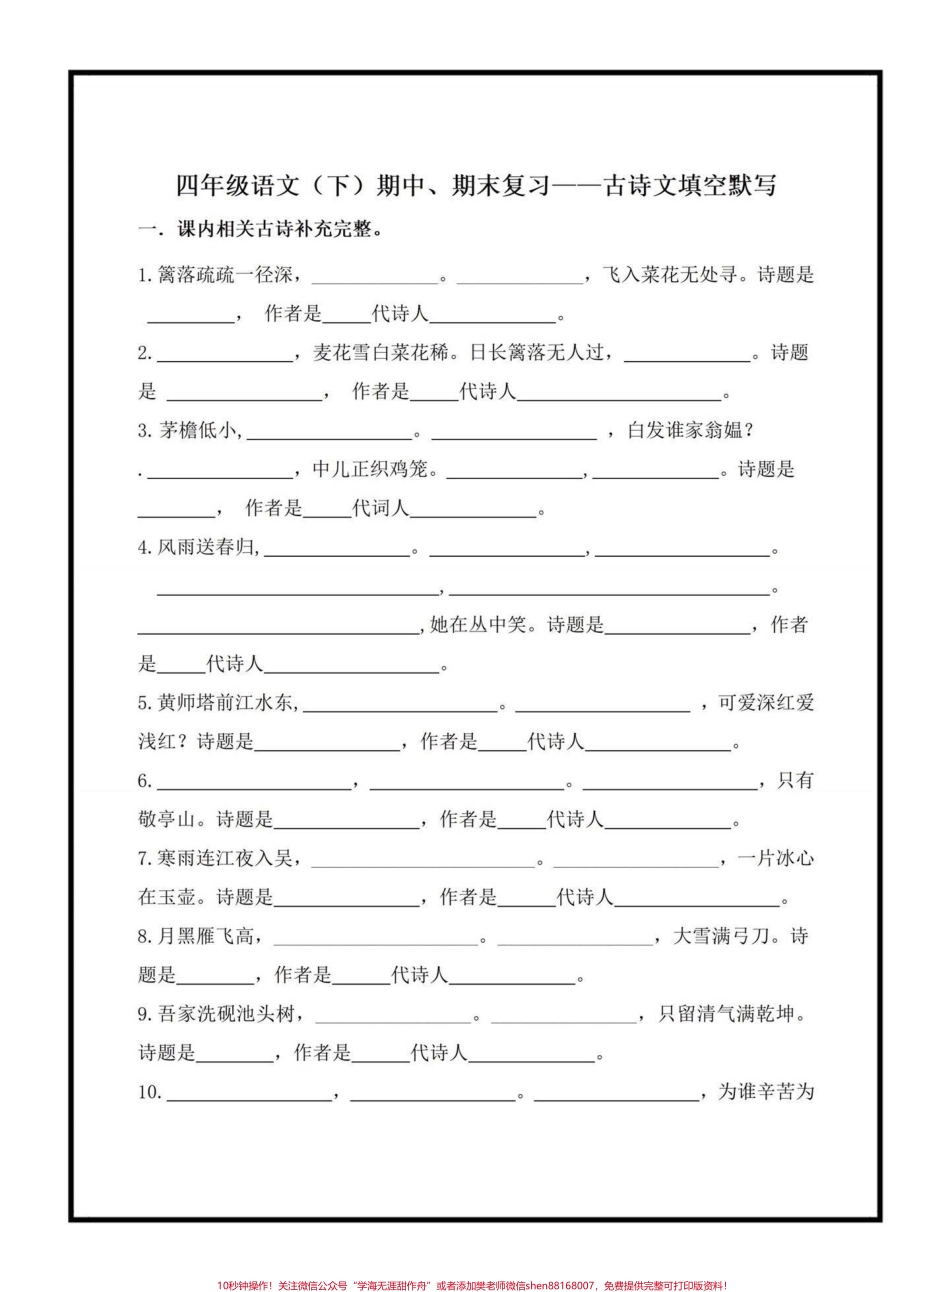 四年级语文（下）期中、期末复习——古诗文填空默写
一．课内相关古诗补充完整。
1.篱落疏疏一径深，_____________。_____________，飞入菜花无处寻。诗题是
_________， 作者是_____代诗人_____________。
2.______________，麦花雪白菜花稀。日长篱落无人过，_____________。诗题
是 ________________， 作者是_____代诗人_____________________。
3.茅檐低小,_________________。_________________ ，白发谁家翁媪？
._______________，中儿正织鸡笼。______________,_____________。诗题是
________， 作者是_____代词人_____________。
4.风雨送春归,_______________。________________,__________________。
_____________________________,_________________________________。
_____________________________,她在丛中笑。诗题是_______________，作者
是_____代诗人__________________。
5.黄师塔前江水东,____________________。__________________ ，可爱深红爱
浅红？诗题是_______________，作者是_____代诗人_______________。
6.____________________，____________________。__________________，只有
敬亭山。诗题是_______________，作者是_____代诗人_____________。
7.寒雨连江夜入吴，_______________________。_________________，一片冰心
在玉壶。诗题是_______________，作者是______代诗人_________________。
8.月黑雁飞高，_____________________。________________，大雪满弓刀。诗
题是________，作者是______代诗人_____________。
9.吾家洗砚池头树，________________。_______________，只留清气满乾坤。
诗题是________，作者是______代诗人_____________。
10._________________，_________________。_________________，为谁辛苦为
10秒钟操作！关注微信公众号“学海无涯甜作舟”或者添加樊老师微信shen88168007，免费提供完整可打印版资料！